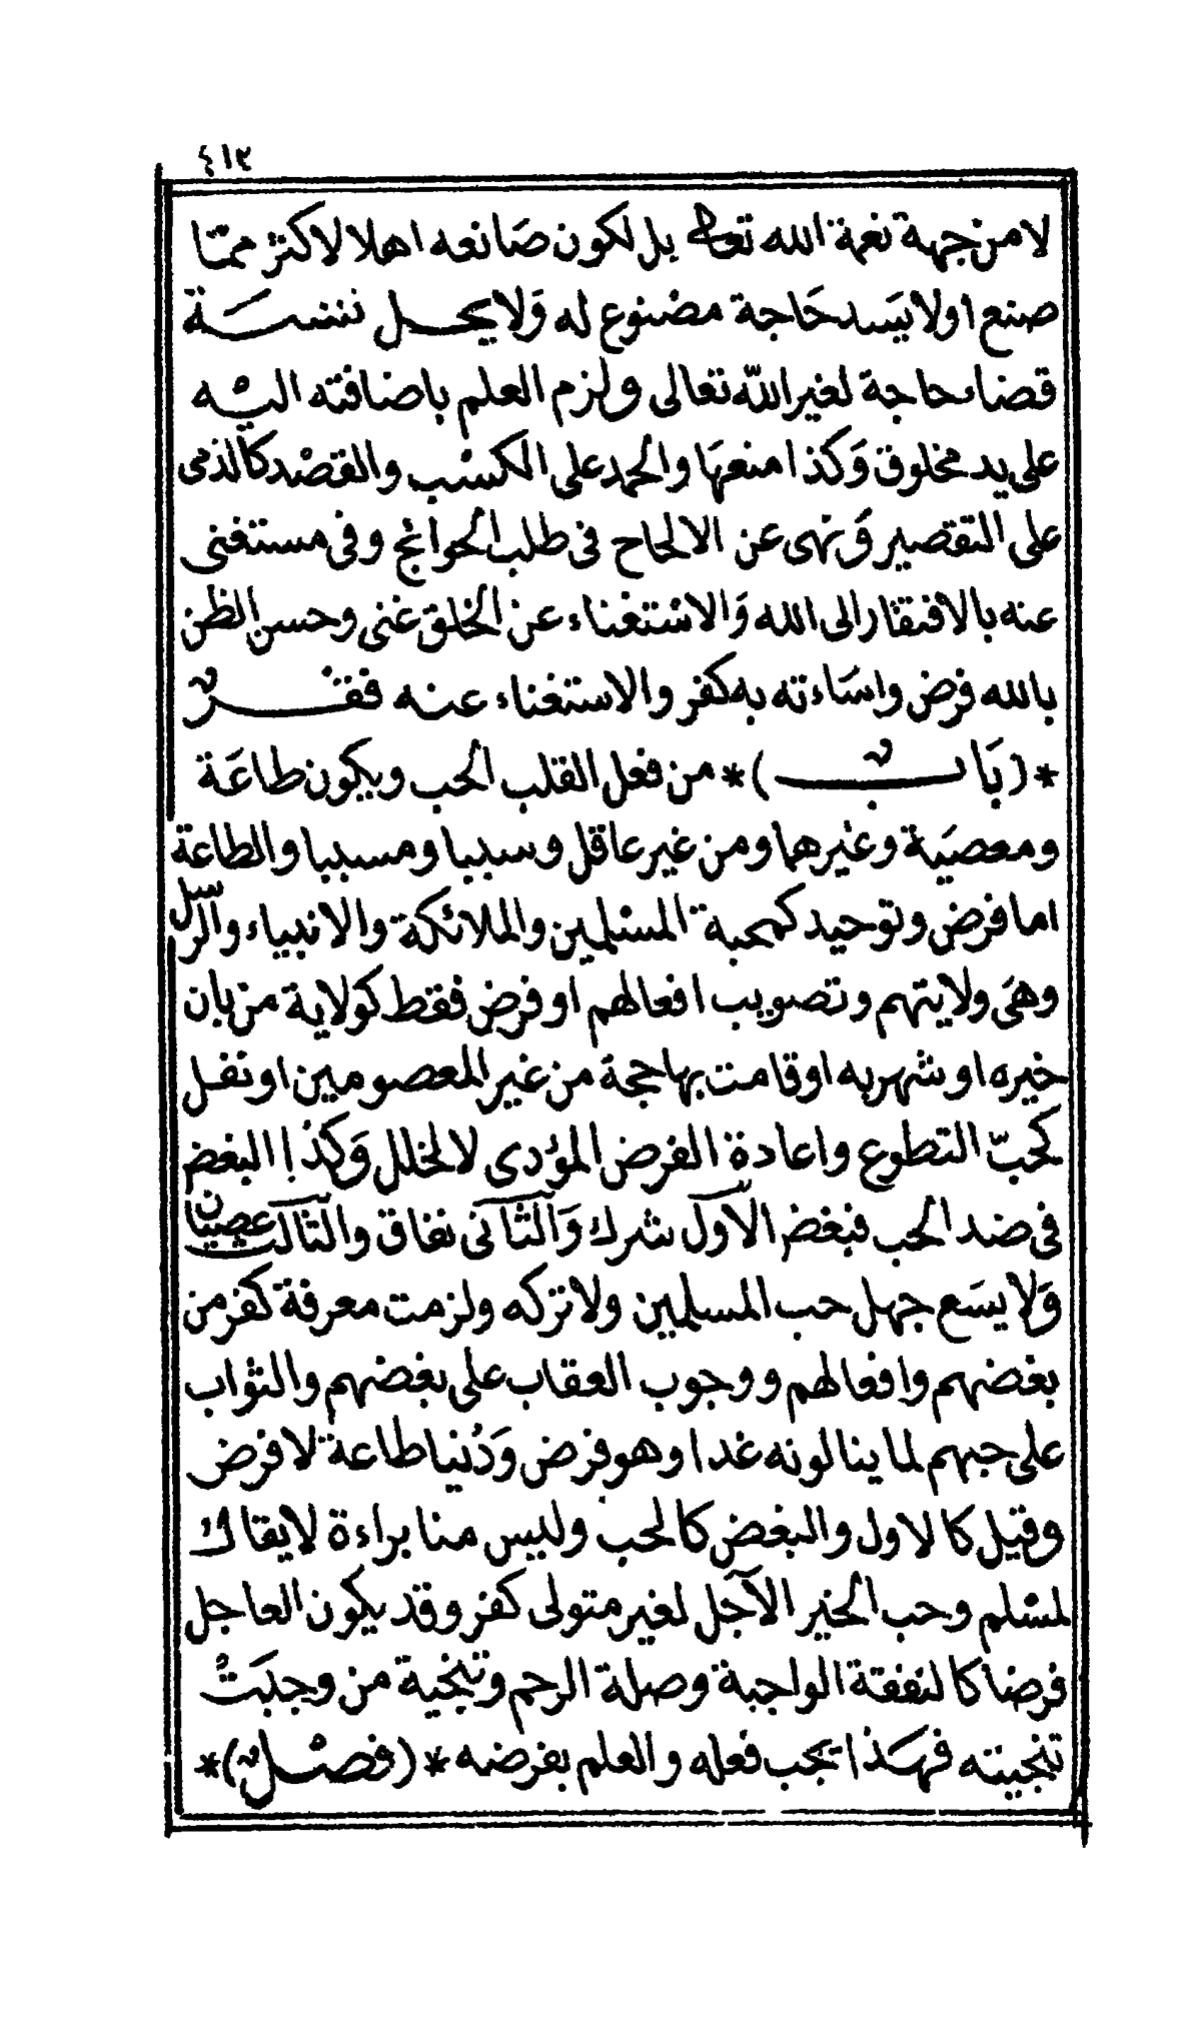 ٤١٢
لا من جهة نعمة الله تعالى بل لكون صَانعه اهلا لاكثر ممّا
صنع او لا يسَد حَاجة مصْنوع له وَلا يحل نسْبَة
قضاء حاجة لغير الله تعالى ولزم العلم باضافته اليْه
على يد مخلوق وَكذا منعهَا والحمد على الكسْب والقصْد كالذم
على التقصير وَنهى عن الالحاح فى طلب الحوائج وفى مستغنى
عنه بالافتقار الى الله وَالاسْتغناء عن الخلق غنى وحسن الظن
بالله فرض واسَاءته به كفر والاستغناء عنه فقر
*(بَاب)* من فعل القلب الحب ويكون طاعَة
ومعصيَة وغيْرهما ومن غير عاقل وسببا ومسببا والطاعة
اما فرض وتوحيد كمحبة المسْلمين والملائكة والانبياء والرسل
وهىَ ولايتهم وتصويب افعالهم او فرض فقط كولاية من بان
خيره او شهر به او قامت بها حجة من غير المعصومين او نفل
كحبّ التطوع واعادة الفرض المؤدى لا لخلل وَكذا البغض
فى ضد الحب فبغض الاول شرك وَالثانى نفاق والثالث عصيان
وَلا يسَع جهل حب المسلمين ولا تركه ولزمت معرفة كفر من
بغضهم وافعالهم ووجوب العقاب على بغضهم والثواب
على حبهم لما ينالونه غدا وهو فرض وَدُنيا طاعة لا فرض
وقيل كالاول والبغض كالحب وليس منا براءة لا يقاك
لمسْلم وحب الخير الآجل لغير متولى كفر وقد يكون العاجل
فرضا كالنفقة الواجبة وصلة الرحم وتنجية من وجبَتْ
تنجيته فهَذا يجب فعله والعلم بفرضه *(فصْل)*